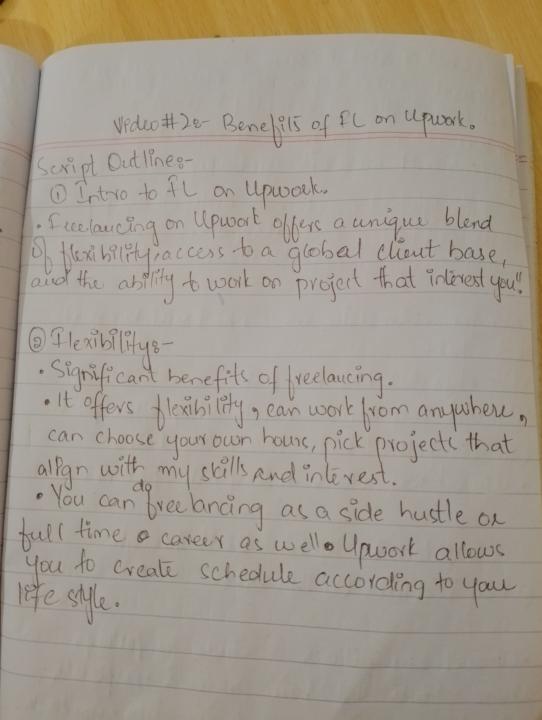 Video#2:- Benefits of FL on Upwork.
Script Outline:-
① Intro to FL on Upwork.
• Freelancing on Upwork offers a unique blend
of flexibility, access to a global client base,
and the ability to work on project that interest you!"
② Flexibility:-
• Significant benefits of freelancing.
• It offers flexibility, can work from anywhere,
can choose your own hours, pick projects that
align with my skills and interest.
• You can do freelancing as a side hustle or
full time career as well. Upwork allows
you to create schedule according to your
life style.